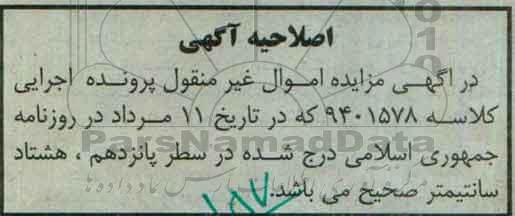 اصلاحیه آگهی
در آگهی مزایده اموال غیر منقول پرونده اجرایی
کلاسه ۹۴۰۱۵۷۸ که در تاریخ ۱۱ مرداد در روزنامه
جمهوری اسلامی درج شده در سطر پانزدهم ، هشتاد
سانتیمتر صحیح می باشد.
ParsNamadData